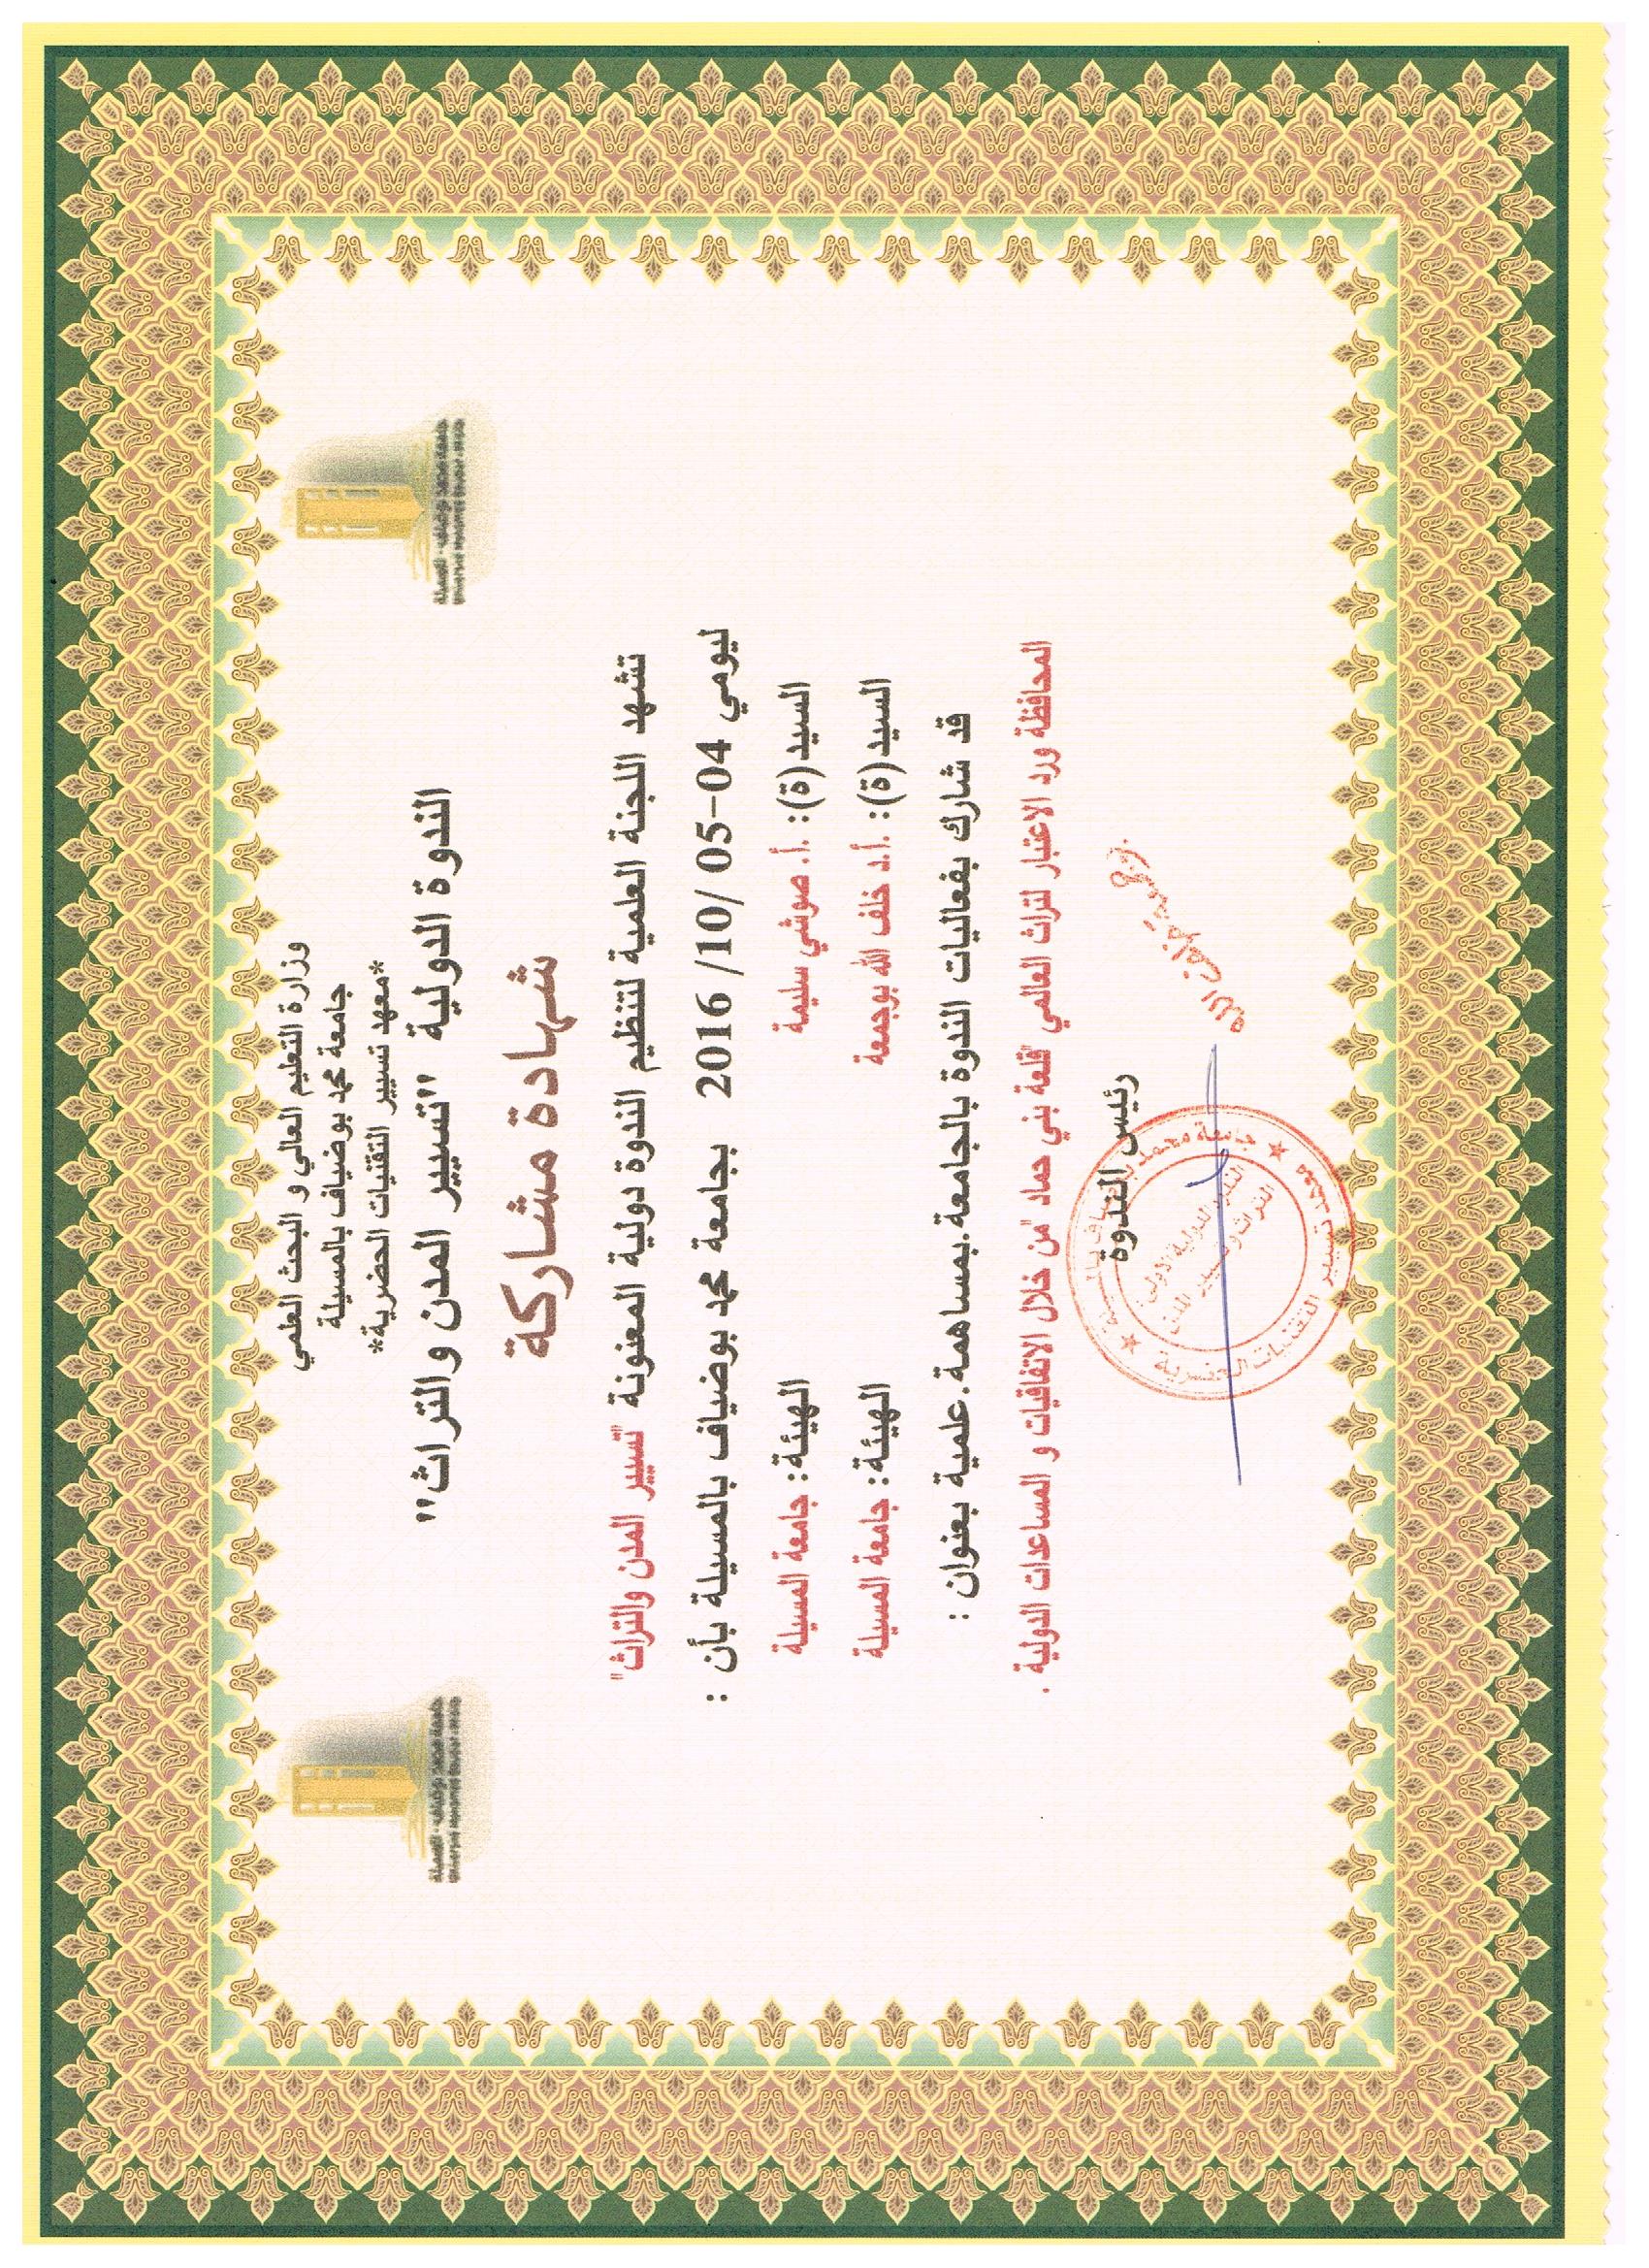 وزارة التعليم العالي و البحث العلمي
جامعة محمد بوضياف بالمسيلة
*معهد تسيير التقنيات الحضرية*
الندوة الدولية "تسيير المدن والتراث"
شهادة مشاركة
تشهد اللجنة العلمية لتنظيم الندوة دولية المعنونة "تسيير المدن والتراث"
ليومي 04-05 /10/ 2016 بجامعة محمد بوضياف بالمسيلة بأن :
السيد(ة): .أ. صوشي سليمة الهيئة: جامعة المسيلة
السيد(ة): .أ.د خلف الله بوجمعة الهيئة: جامعة المسيلة
قد شارك بفعاليات الندوة بالجامعة.بمساهمة.علمية بعنوان :
المحافظة ورد الاعتبار لتراث العالمي "قلعة بني حماد "من خلال الاتفاقيات و المساعدات الدولية .
رئيس الندوة
بوجمعة خلف الله
جامعة محمد بوضياف بالمسيلة
معهد تسيير التقنيات الحضرية